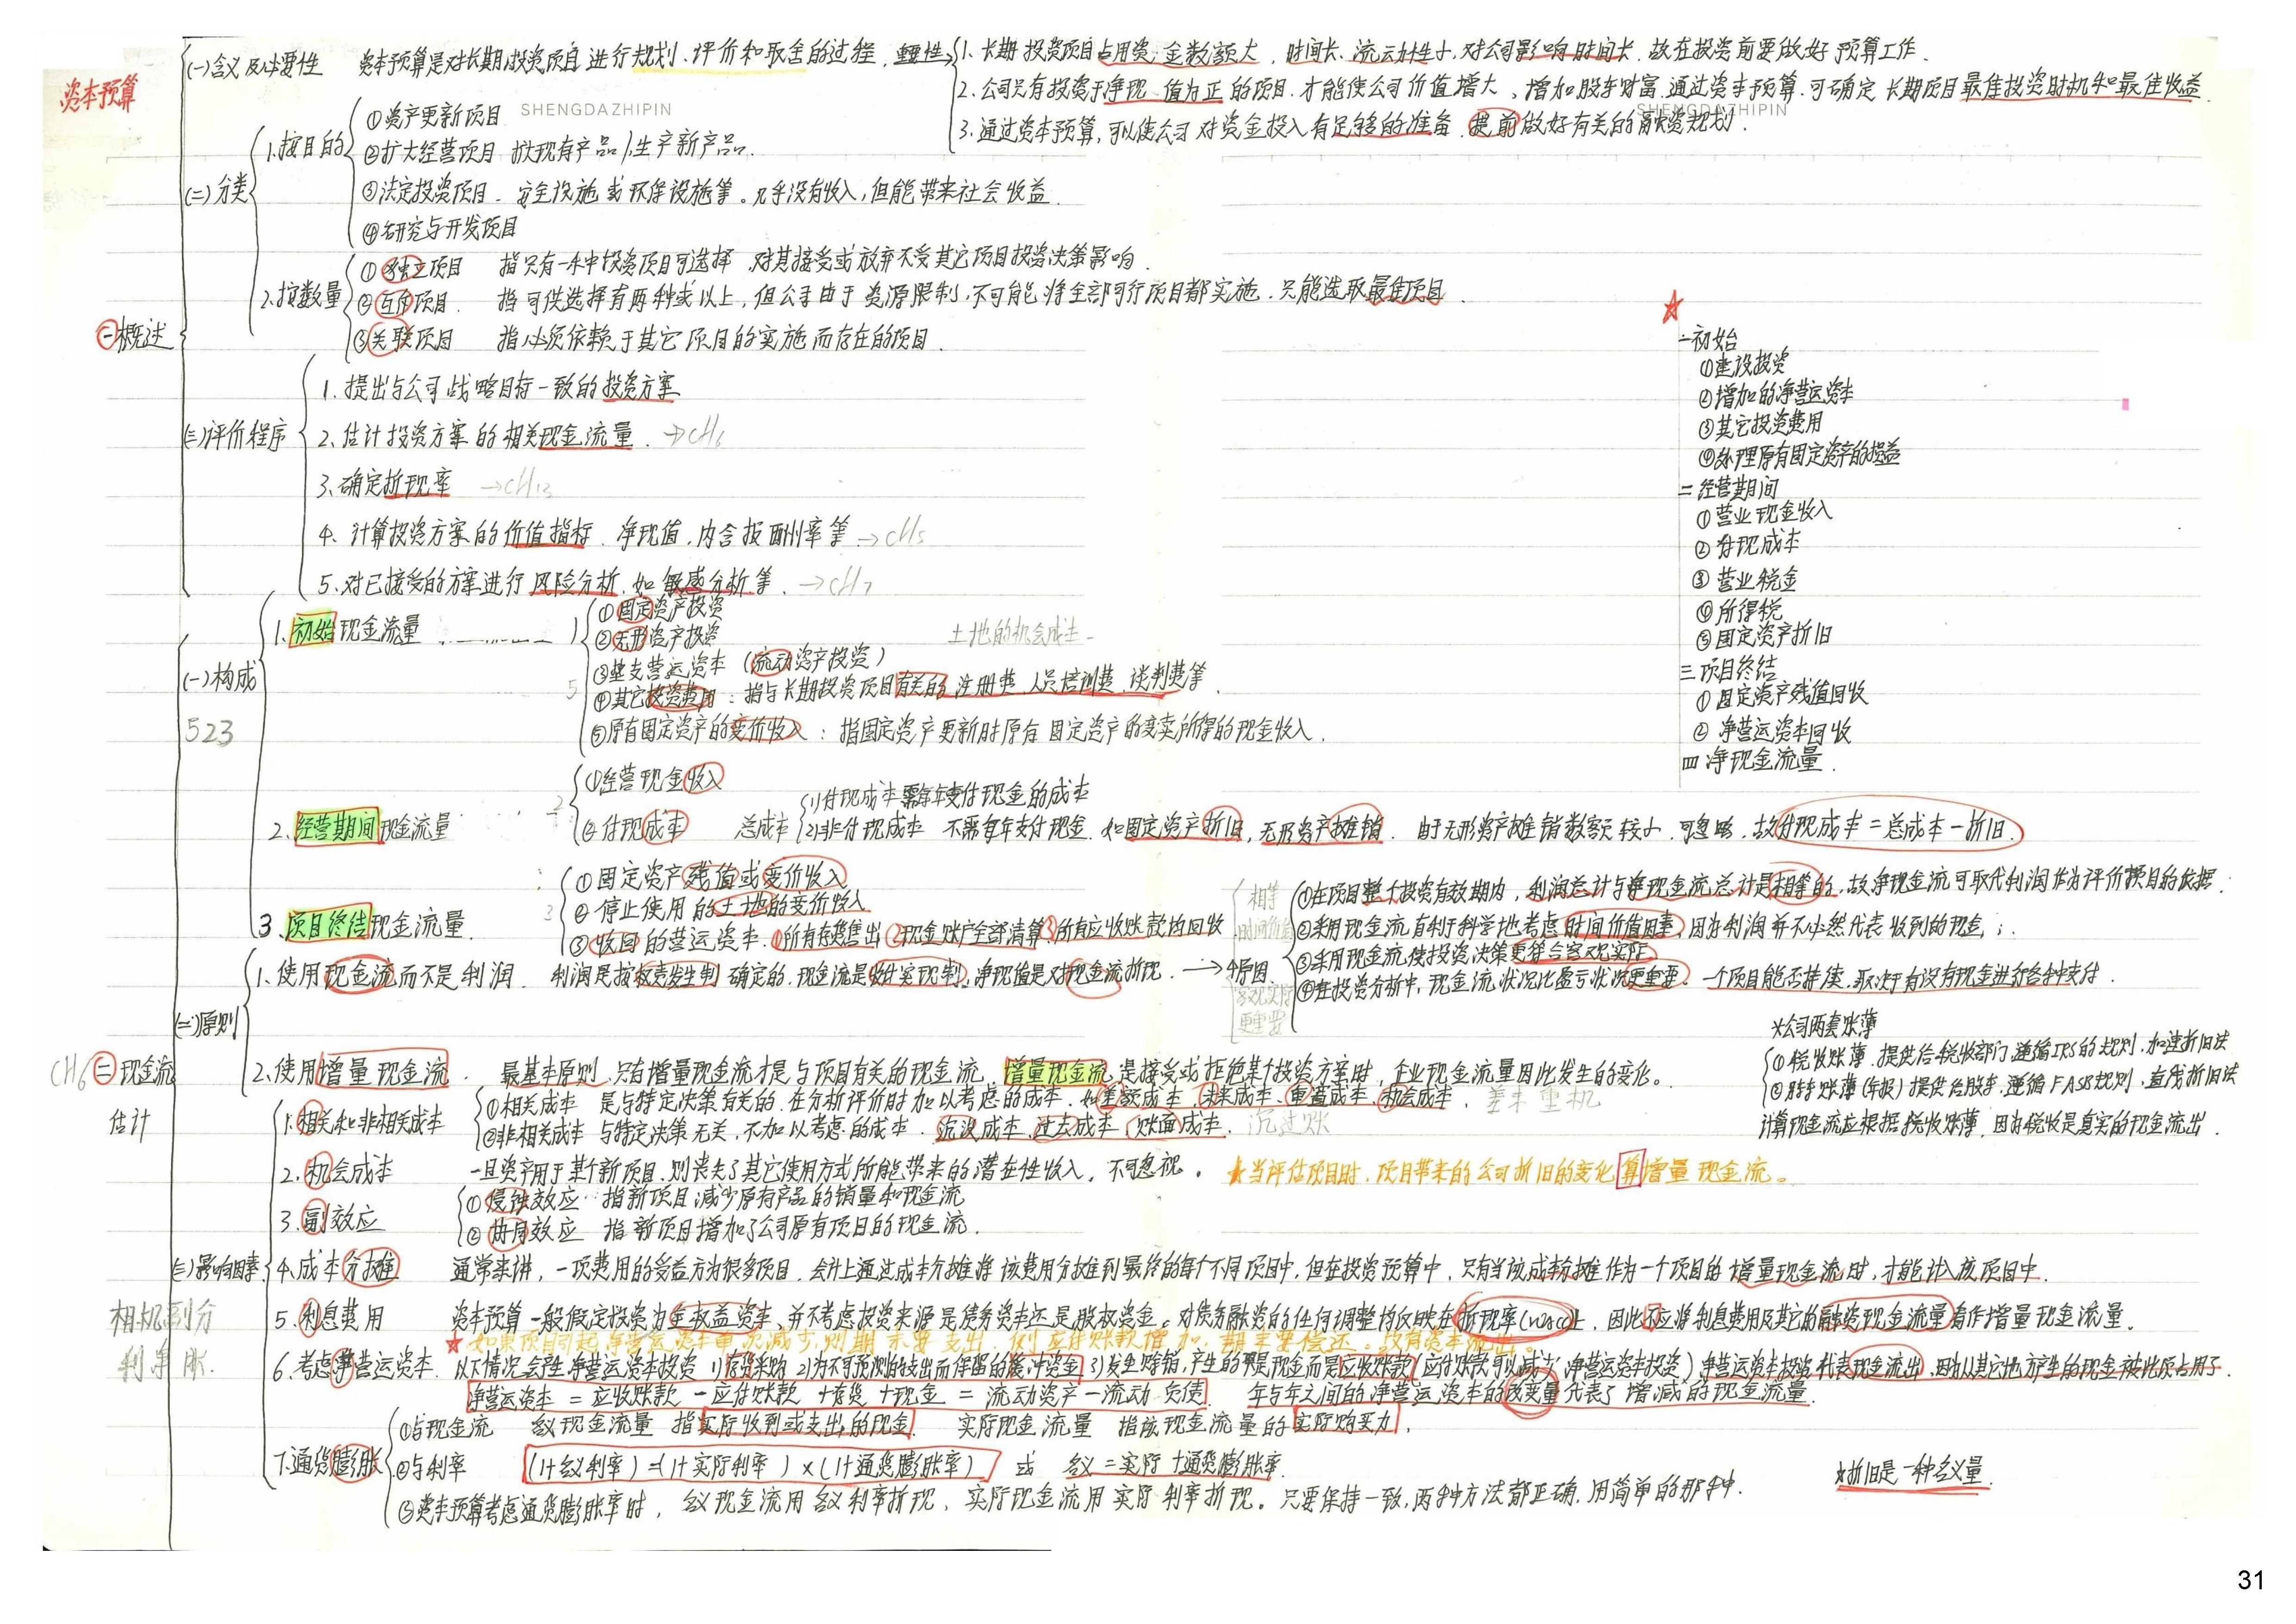 资本预算
(一)含义及必要性 资本预算是对长期投资项目进行规划、评价和取舍的过程. 重要性
1. 长期投资项目占用资金数额大,时间长、流动性小,对公司影响时间长.故在投资前要做好预算工作.
2. 公司只有投资于净现值为正的项目.才能使公司价值增大、增加股东财富.通过资本预算.可确定长期项目最佳投资时机和最佳收益.
3. 通过资本预算,可以使公司对资金投入有足够的准备.提前做好有关的融资规划.
SHENGDAZHIPIN
SHENGDAZHIPIN
(二)分类
1.按目的
①资产更新项目
②扩大经营项目 扩大现有产品/生产新产品.
③法定投资项目. 安全设施或环保设施等。几乎没有收入,但能带来社会收益.
④研究与开发项目
2.按数量
①独立项目 指只有一种投资项目可选择 对其接受或放弃不受其它项目投资决策影响.
②互斥项目. 指可供选择有两种或以上,但公司由于资源限制,不可能将全部可行项目都实施.只能选取最佳项目.
③关联项目 指必须依赖于其它项目的实施而存在的项目.
一概述
(三)评价程序
1. 提出与公司战略目标一致的投资方案
2. 估计投资方案的相关现金流量. →CH6
3. 确定折现率 →CH13
4. 计算投资方案的价值指标. 净现值,内含报酬率等 →CH5
5. 对已接受的方案进行风险分析.如敏感分析等. →CH7
一初始
①建设投资
②增加的净营运资本
③其它投资费用
④处理原有固定资产的损益
二 经营期间
①营业现金收入
②付现成本
③营业税金
④所得税
⑤固定资产折旧
三 项目终结
①固定资产残值回收
②净营运资本回收
四 净现金流量.
CH6 二现金流估计
(一)构成
523
1. 初始现金流量
①固定资产投资
②无形资产投资
土地的机会成本
③垫支营运资本 (流动资产投资)
5
④其它投资费用:指与长期投资项目有关的注册费.人员培训费.谈判费等.
⑤原有固定资产的变价收入:指固定资产更新时原有固定资产的变卖所得的现金收入.
2. 经营期间现金流量
2
①经营现金收入
②付现成本 总成本
(1)付现成本 需每年支付现金的成本
(2)非付现成本 不需每年支付现金.如固定资产折旧,无形资产摊销. 由于无形资产摊销数额较小.可忽略,故付现成本=总成本-折旧.
3. 项目终结现金流量.
3
①固定资产残值或变价收入
②停止使用的土地的变价收入
③收回的营运资本.①所有存货售出②现金账户全部清算③所有应收账款均回收
(二)原则
1.使用现金流而不是利润. 利润是按权责发生制确定的.现金流是收付实现制.净现值是对现金流折现. →4原因
相等
时间价值
客观实际
更重要
①在项目整个投资有效期内,利润总计与净现金流总计是相等的.故净现金流可取代利润作为评价项目的依据.
②采用现金流有利于科学地考虑时间价值因素,因为利润并不必然代表收到的现金;
③采用现金流使投资决策更符合客观实际
④在投资分析中,现金流状况比盈亏状况更重要. 一个项目能否持续.取决于有没有现金进行各种支付.
2.使用增量现金流. 最基本原则.只有增量现金流才是与项目有关的现金流. 增量现金流是接受或拒绝某个投资方案时,企业现金流量因此发生的变化。
*公司两套账薄
①税收账薄.提供给税收部门.遵循IRS的规则.加速折旧法
②财务账薄(年报)提供给股东.遵循FASB规则,直线折旧法
计算现金流应根据税收账薄.因为税收是真实的现金流出.
(三)影响因素
相机副分
利净胀.
1.相关和非相关成本
①相关成本 是与特定决策有关的.在分析评价时加以考虑的成本.如差额成本,未来成本,重置成本,机会成本. 差未重机
②非相关成本 与特定决策无关,不加以考虑的成本. 沉没成本.过去成本.账面成本. 沉过账
2.机会成本 一旦资产用于某个新项目.则丧失了其它使用方式所能带来的潜在性收入,不可忽视。 ★当评估项目时,项目带来的公司折旧的变化算增量现金流。
3.副效应
①侵蚀效应 指新项目减少原有产品的销量和现金流
②协同效应 指新项目增加了公司原有项目的现金流.
4.成本分摊 通常来讲,一项费用的受益方为很多项目.会计上通过成本分摊将该费用分摊到最终的每个不同项目中,但在投资预算中,只有当该成本分摊作为一个项目的增量现金流时,才能计入该项目中.
5.利息费用 资本预算一般假定投资为全权益资本.并不考虑投资来源是债务资本还是股权资金。对债务融资的任何调整均反映在折现率(WACC)上,因此不应将利息费用及其它的融资现金流量看作增量现金流量。
★如果项目引起净营运资本单次减少,则期末要支出. 例应付账款增加.期末要偿还.故有资本流出。
6.考虑净营运资本. 以下情况会产生净营运资本投资 1)存货采购 2)为不可预测的支出而保留的缓冲资金 3)发生赊销,产生的不是现金而是应收账款(应付账款可以减少净营运资本投资)净营运资本投资代表现金流出.因为从其它地方产生的现金被此项占用了.
净营运资本=应收账款-应付账款+存货+现金=流动资产-流动负债. 年与年之间的净营运资本的改变量代表了增减的现金流量.
7.通货膨胀
①与现金流 名义现金流量 指实际收到或支出的现金. 实际现金流量 指该现金流量的实际购买力.
②与利率 (1+名义利率)=(1+实际利率)×(1+通货膨胀率) 或 名义=实际+通货膨胀率.
③资本预算考虑通货膨胀率时,名义现金流用名义利率折现.实际现金流用实际利率折现。只要保持一致,两种方法都正确.用简单的那种.
*折旧是一种名义量.
31